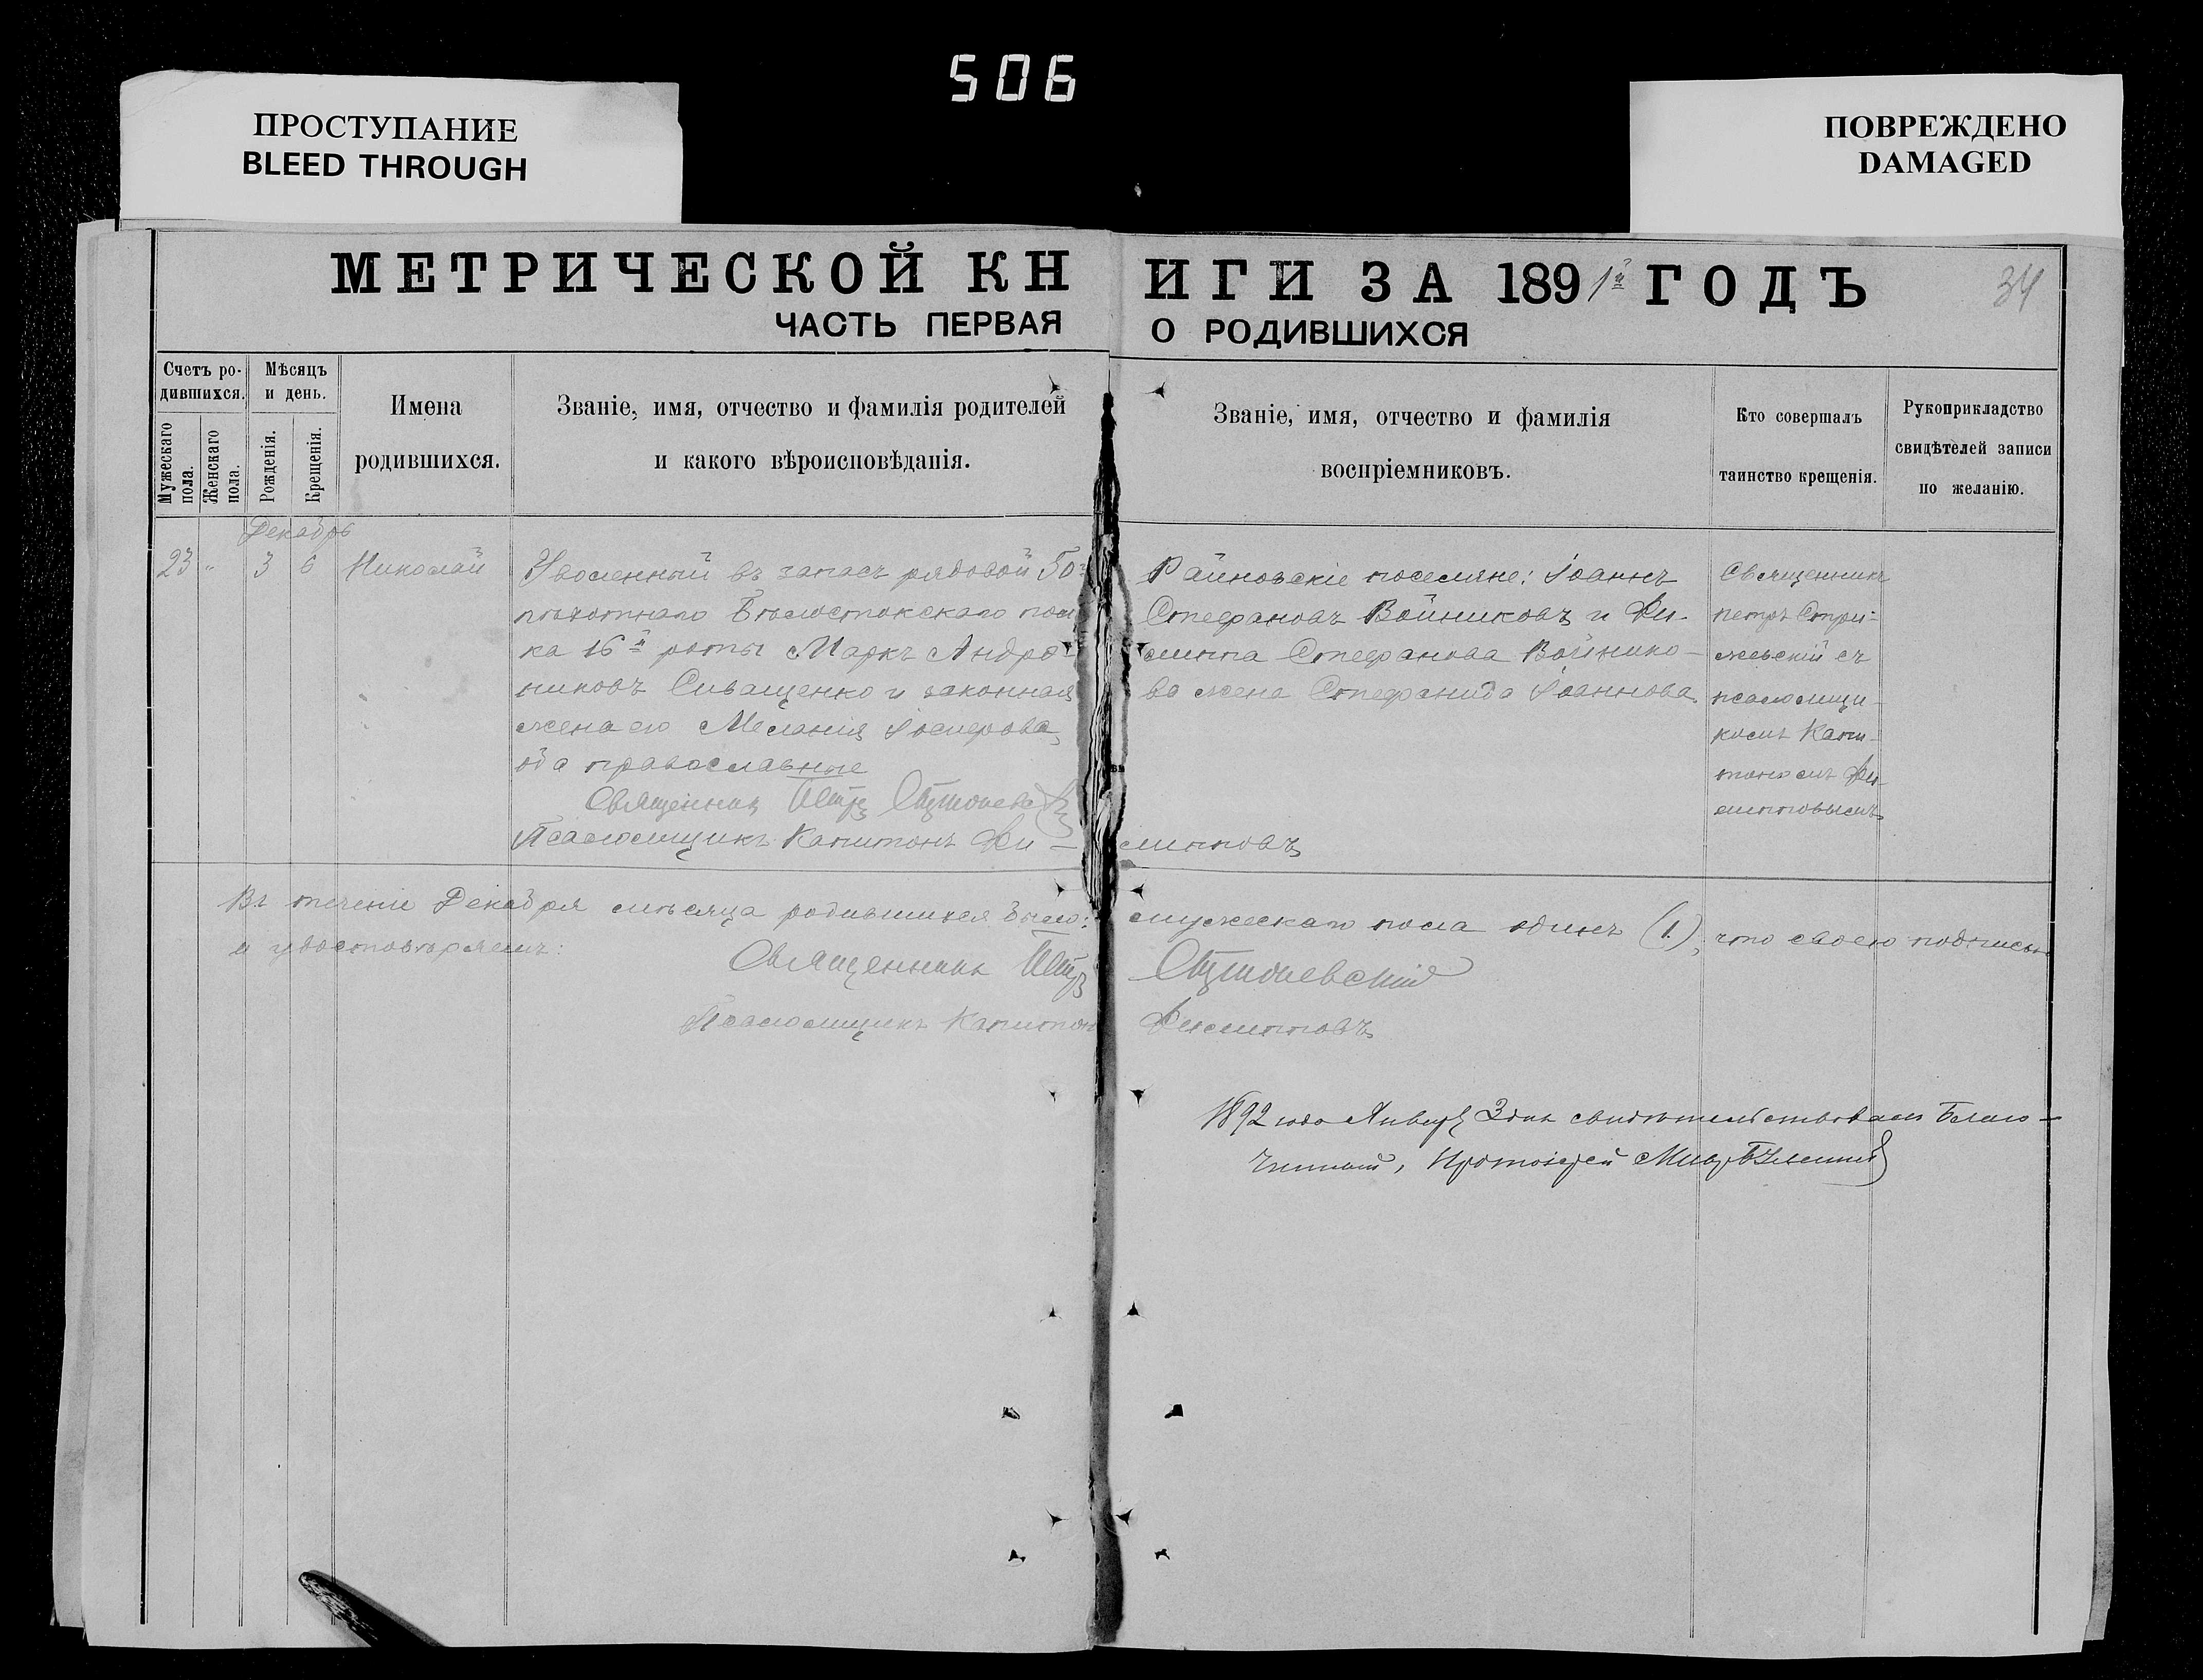 506
ПРОСТУПАНИЕ
BLEED THROUGH
ПОВРЕЖДЕНО
DAMAGED
МЕТРИЧЕСКОЙ КНИГИ ЗА 1891й ГОДЪ
34
ЧАСТЬ ПЕРВАЯ О РОДИВШИХСЯ
Счетъ ро-
дившихся.
Мужескаго
пола.
Женскаго
пола.
Мѣсяцъ
и день.
Рожденія.
Крещенія.
Имена
родившихся.
Званіе, имя, отчество и фамилія родителей
и какого вѣроисповѣданія.
Званіе, имя, отчество и фамилія
воспріемниковъ.
Кто совершалъ
таинство крещенія.
Рукоприкладство
свидѣтелей записи
по желанію.
Декабрь
23 " 3 6 Николай
Уволенный въ запасъ рядовой 50
пѣхотнаго Бѣлостокскаго пол
ка 16й роты Маркъ Андро-
никовъ Сиващенко и законная
жена его Меланія
оба православные
Священникъ Петръ
Псаломщикъ Капитонъ Фи-
липповъ
Райновскіе поселяне: Іоаннъ
Стефановъ Войниковъ и Фи-
липпа Стефанова Войнико-
ва жена Стефанида Іоаннова
Священникъ
Петръ Стри-
жевскій съ
псаломщи-
комъ Капи-
тономъ Фи-
липповымъ
Въ теченіе Декабря мѣсяца родившихся было: мужескаго пола одинъ (1), что своею подписью
и удостовѣряемъ:
Священникъ Петръ
Псаломщикъ Капитонъ Филипповъ
1892 года Января 3 дня свидѣтельствовалъ Благо-
чинный, Протоіерей